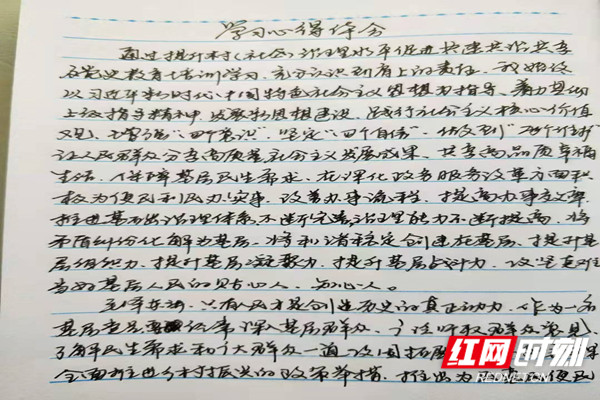 学习心得体会
通过提升村(社会)治理水平促进共建共治共享
历史教育培训学习,充分认识到肩上的责任,我始终
以习近平新时代中国特色社会主义思想为指导,着力贯彻
上级指导精神,加强思想建设,践行社会主义核心价值
观,增强“四个意识”坚定“四个自信”,做到“两个维护”
让人民群众分享高质量社会主义发展成果,共享高品质幸福
生活,保障基层民生需求,在深化政务服务改革方面积
极为便民利民办实事,改善办事流程,提高办事效率,
推进基层治理体系不断完善治理能力不断提高,将
矛盾纠纷化解为基层,将和谐稳定创建在基层,提升基
层组织力,提升基层凝聚力,提升基层战斗力,
当好基层人民的贴心人、知心人。
毛泽东说:只有人民才是创造历史的真正动力,作为一名
基层党员要经常深入基层群众,广泛听取群众意见,
了解民生需求和广大群众一道
全面推进乡村振兴的政策举措,推出为民
红网时刻
REDNET.CN